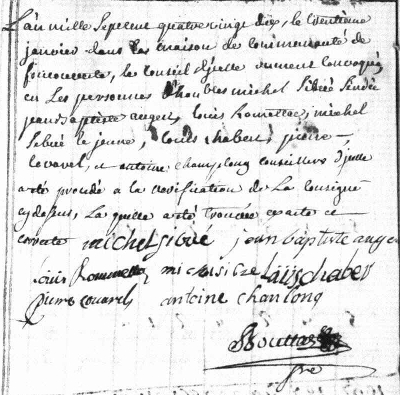 L'an mille sept cent quatre vingt dix, le trentieme
janvier dans la maison de communauté de
le Conseil d'jcelle duement Convoqué
en Les personnes d'honbres michel Sibié
jean baptiste anger, louis Rommettes, michel
Sibié le jeune, Louis chabert, pierre
covarel, et antoine champlong conseillers d'jcelle
a été procédé a la verification de La Consigne
cy dessus, La quelle a été trouvée exacte et
michel sibié jean baptiste anger
Louis Rommette michel sibié laiis chaber
pierre couarel antoine chanlong